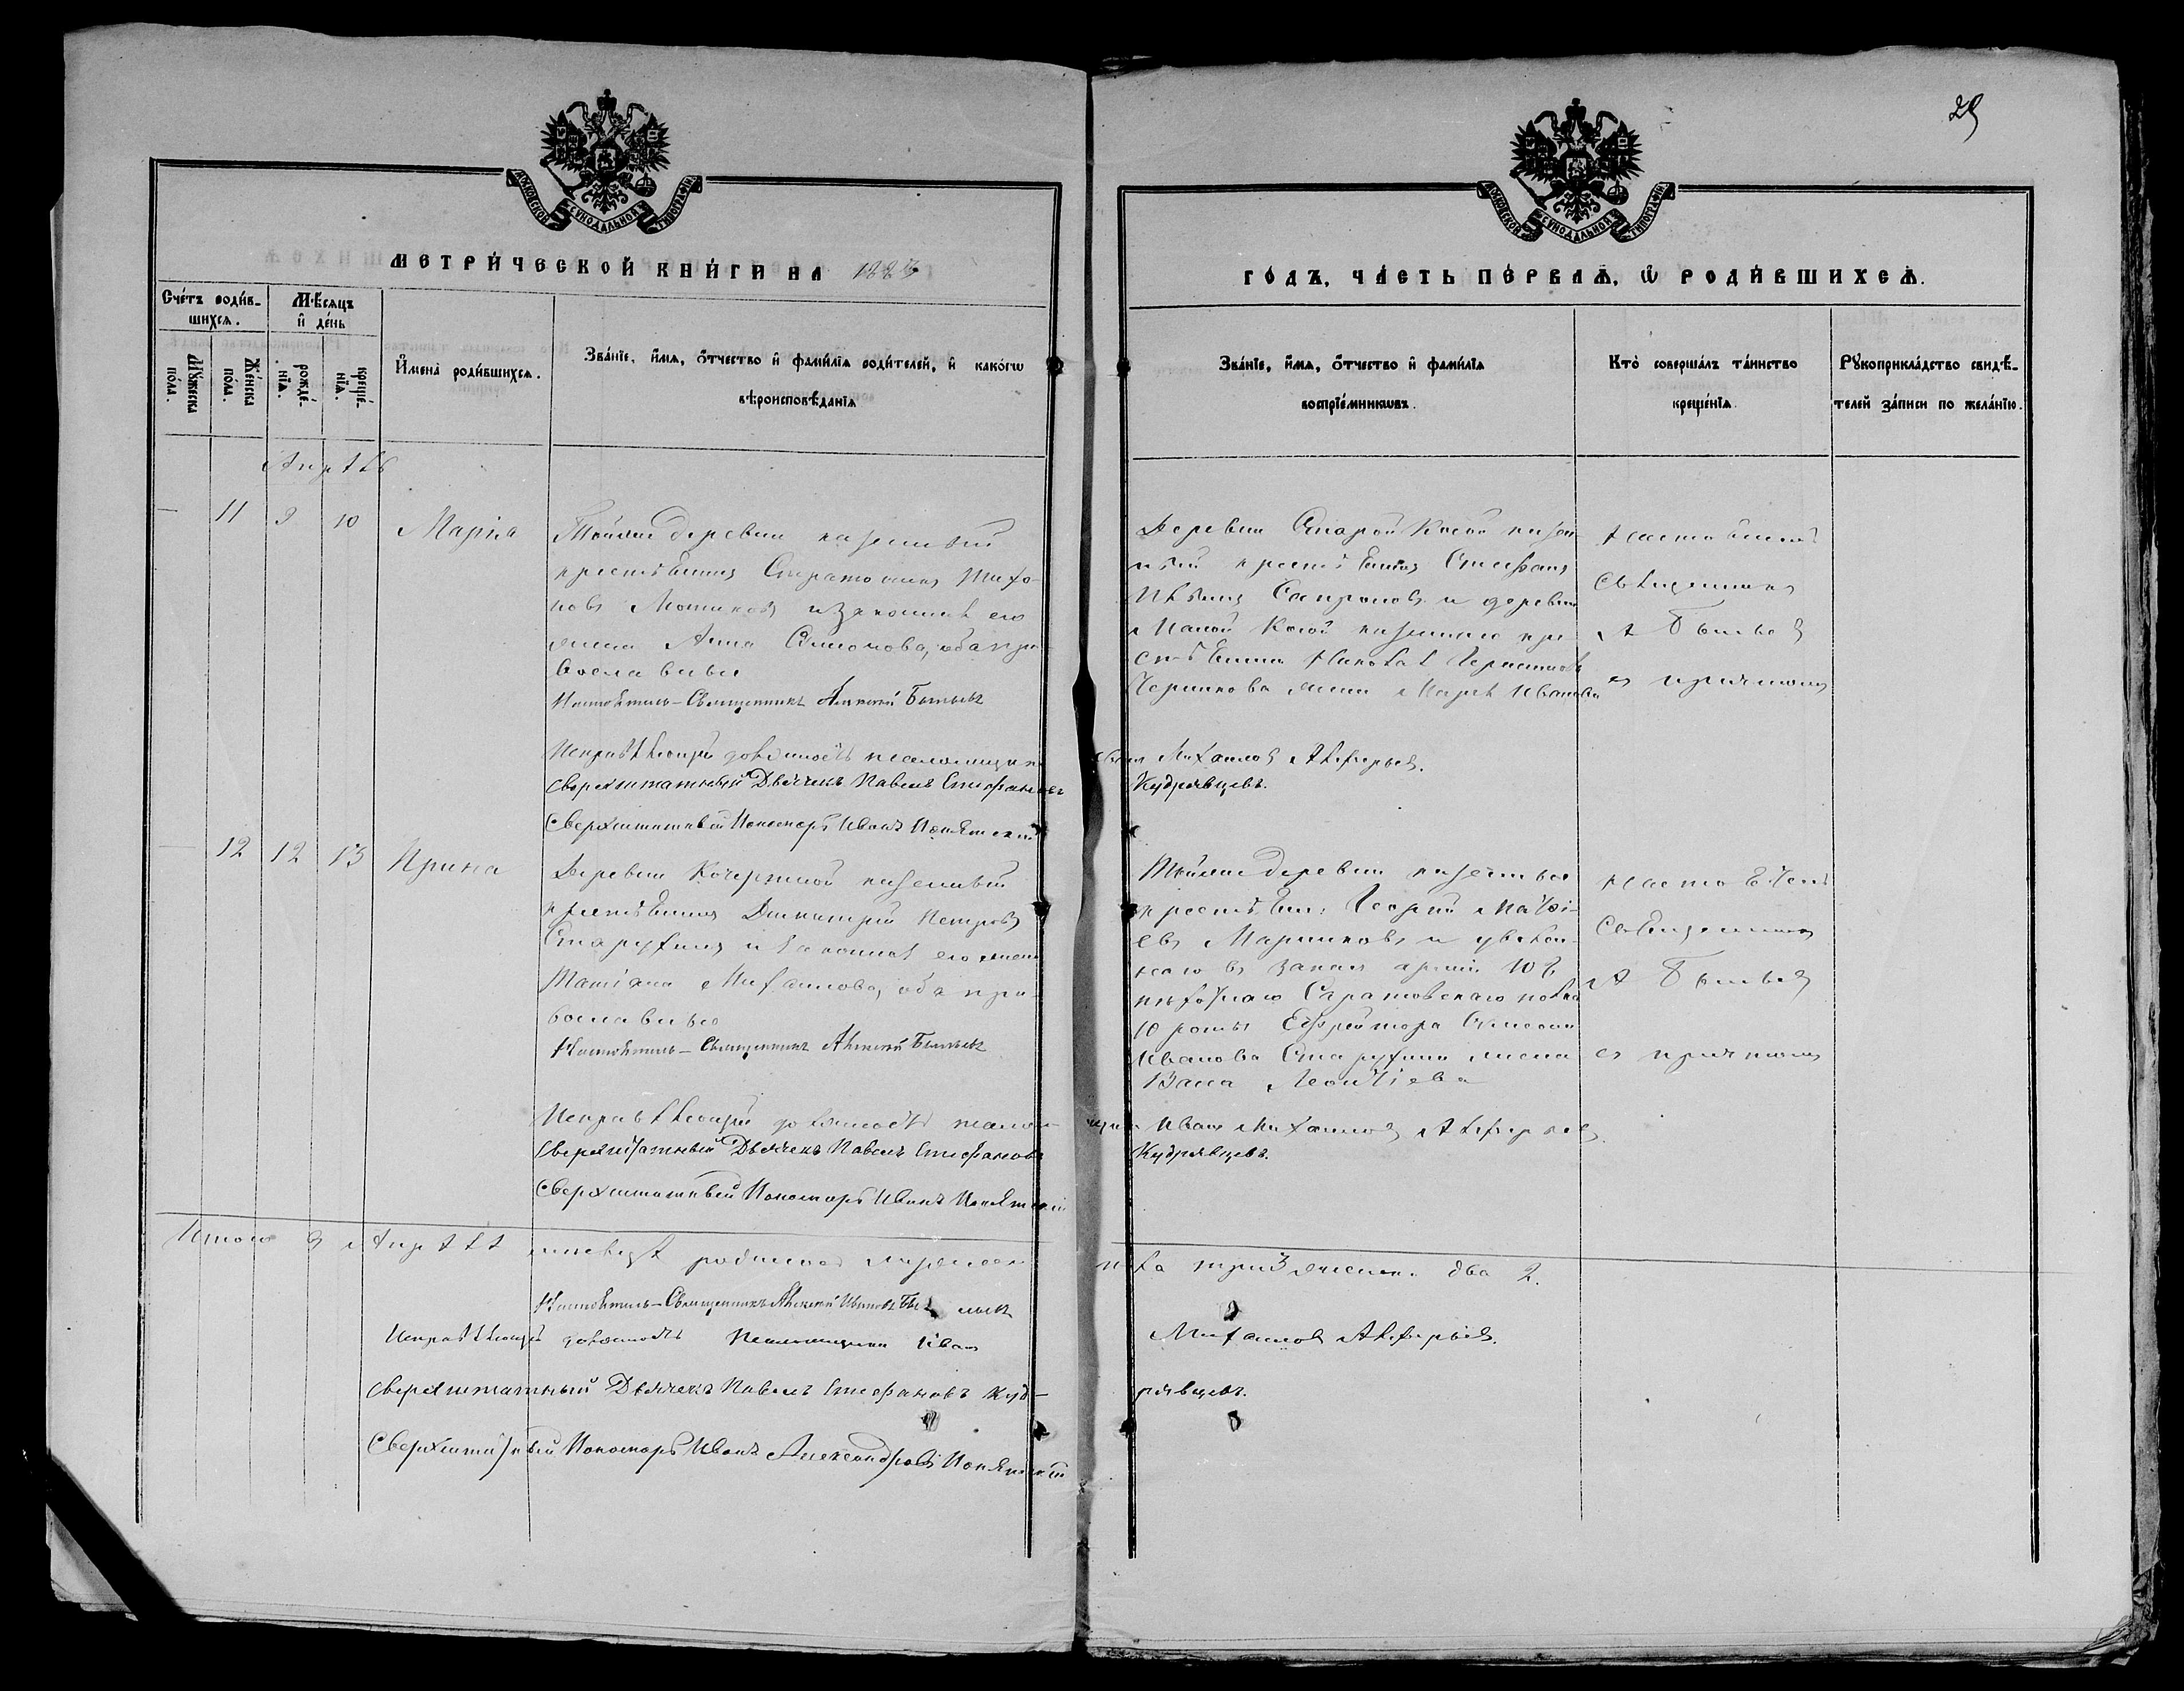 29
МОСКОВСКОЙ СУНОДАЛЬНОЙ ТИПОГРАФІИ
МОСКОВСКОЙ СУНОДАЛЬНОЙ ТИПОГРАФІИ
МЕТРИ́ЧЕСКОЙ КНИ́ГИ НА 188
ГО́ДЪ, ЧА́СТЬ ПЕ́РВАѦ, Ѡ҆ РОДИ́ВШИХСѦ.
Сче́тъ роди́в-
шихсѧ.
Му́жеска по́ла.
Же́нска по́ла.
Мѣ́сяцъ
и҆ де́нь
рожде́-
нїѧ.
креще́-
нїѧ.
И҆мена̀ роди́вшихсѧ.
Зва́нїе, и҆́мѧ, ѻ҆́тчество и҆ фами́лїѧ роди́телей, и҆ како́гѡ
вѣроисповѣ́данїѧ
Зва́нїе, и҆́мѧ, ѻ҆́тчество и҆ фами́лїѧ
воспрїе́мникѡвъ.
Кто̀ соверша́лъ та́инство
креще́нїѧ
Рꙋкоприкла́дство свидѣ́-
телей за́писи по жела́нїю.
Апрѣль
— 11 9 10 Марія
Тойже деревни казенный
крестьянинъ Стратоникъ Тихо-
новъ и законная его
жена Анна Симонова, оба пра-
вославные
Настоятель-Священникъ Алексей Быльевъ
Исправляющій должность псаломщика
Сверхштатный Дьячекъ Павелъ Стефановъ
Сверхштатный Пономарь Иванъ
Деревни Старой казен-
ный крестьянинъ Стефанъ
Сапроновъ и деревни
Малой казеннаго кре-
стьянина
жена Марья Иванова
Иванъ Михаиловъ Алферьевъ.
Кудрявцевъ.
Настоятель
Священникъ
А Быльевъ
съ причтомъ
— 12 12 13 Ирина
Деревни казенный
крестьянинъ Димитрій Петровъ
Старухинъ и законная его жена
Татіана Михаилова, оба пра-
вославные
Настоятель-Священникъ Алексей Быльевъ
Исправляющій должность псалом-
Сверхштатный Дьячекъ Павелъ Стефановъ
Сверхштатный Пономарь Иванъ
Тойже деревни казенный
крестьянинъ Георгій Матѳі-
евъ и уволен-
наго въ запасъ арміи 108
пѣхотнаго Саратовскаго полка
10 роты Ефрейтора Симеона
Иванова Старухина жена
Васса Леонтіева
щика Иванъ Михаиловъ Алферьевъ.
Кудрявцевъ.
Настоятель
Священникъ
А Быльевъ
съ причтомъ
Итого въ Апрѣлѣ мѣсяцѣ родилось мужеска
пола три 3 женска два 2.
Настоятель-Священникъ Алексей Ивановъ Быльевъ
Исправляющій должность Псаломщика Иванъ
Михаиловъ Алферьевъ.
Сверхштатный Дьячекъ Павелъ Стефановъ Куд-
рявцевъ.
Сверхштатный Пономарь Иванъ Александровъ